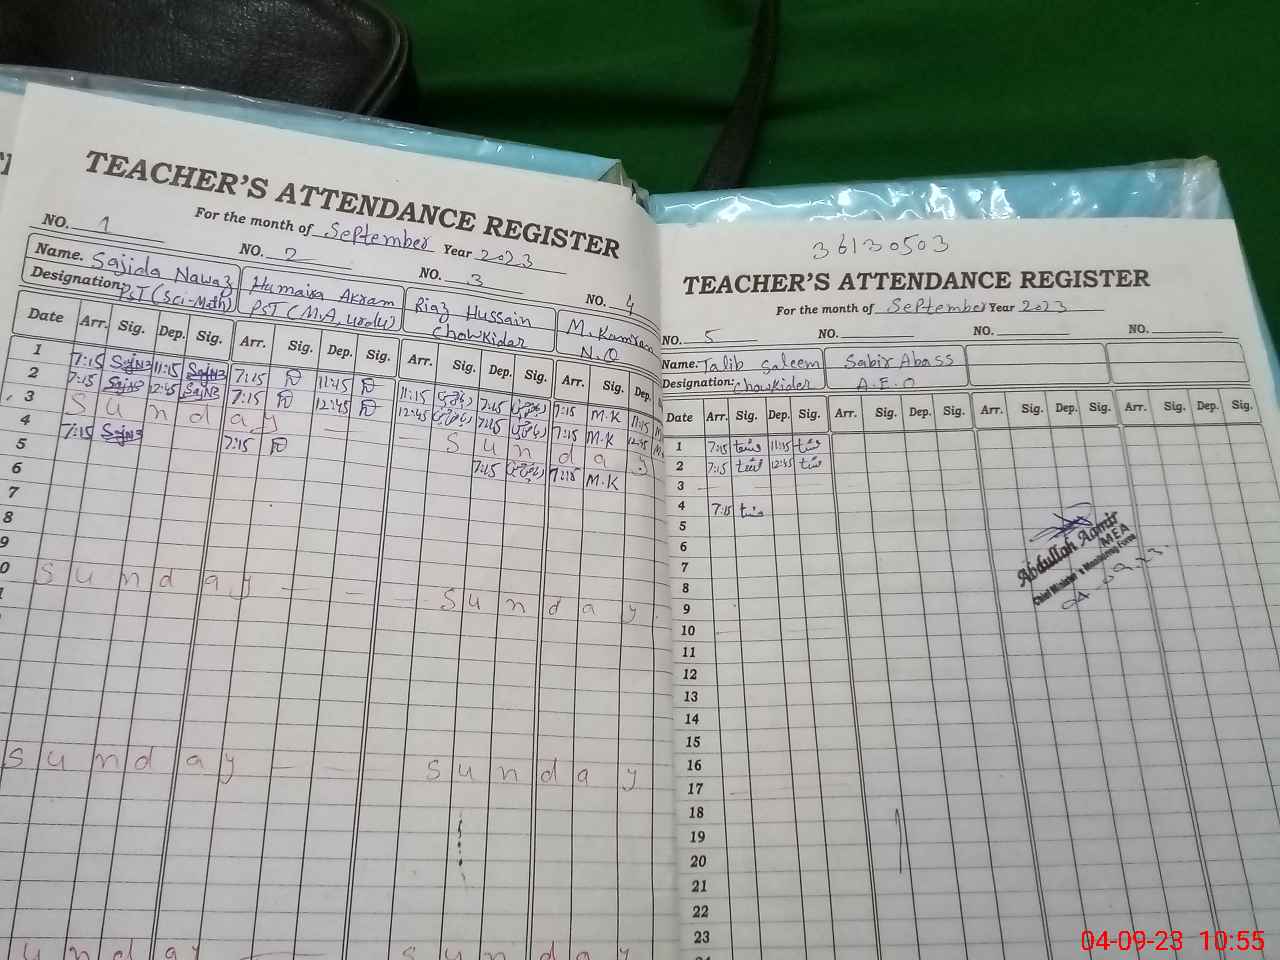 TEACHER'S ATTENDANCE REGISTER
For the month of September Year 2023
NO. 1 NO. 2 NO. 3 NO. 4
Name. Sajida Nawaz Humaira Akram Riaz Hussain M. Kamran
Designation: PST (Sci-Math) PST (M.A, urdu) Chowkidar N.Q
Date Arr. Sig. Dep. Sig. Arr. Sig. Dep. Sig. Arr. Sig. Dep. Sig. Arr. Sig. Dep.
1 7:15 SajN3 11:15 SajN3 7:15 11:15 11:15 7:15 7:15 M.K 11:15
2 7:15 SajN3 12:45 SajN3 7:15 12:45 12:45 7:15 7:15 M.K 12:45
3 Sunday Sunday
4 7:15 SajN3 7:15 7:15 7:15 M.K
5
6
7
8
9
0 Sunday Sunday
Sunday Sunday
unday Sunday
36130503
TEACHER'S ATTENDANCE REGISTER
For the month of September Year 2023
NO. 5 NO. NO. NO.
Name: Talib Saleem Sabir Abass
Designation: Chowkidar A.E.O
Date Arr. Sig. Dep. Sig. Arr. Sig. Dep. Sig. Arr. Sig. Dep. Sig. Arr. Sig. Dep. Sig.
1 7:15 11:15
2 7:15 12:45
3
4 7:15
5
6
7
8
9
10
11
12
13
14
15
16
17
18
19
20
21
22
23
Abdullah Aamir
MEA
Chief Minister's Monitoring Force
04-09-23
04-09-23 10:55